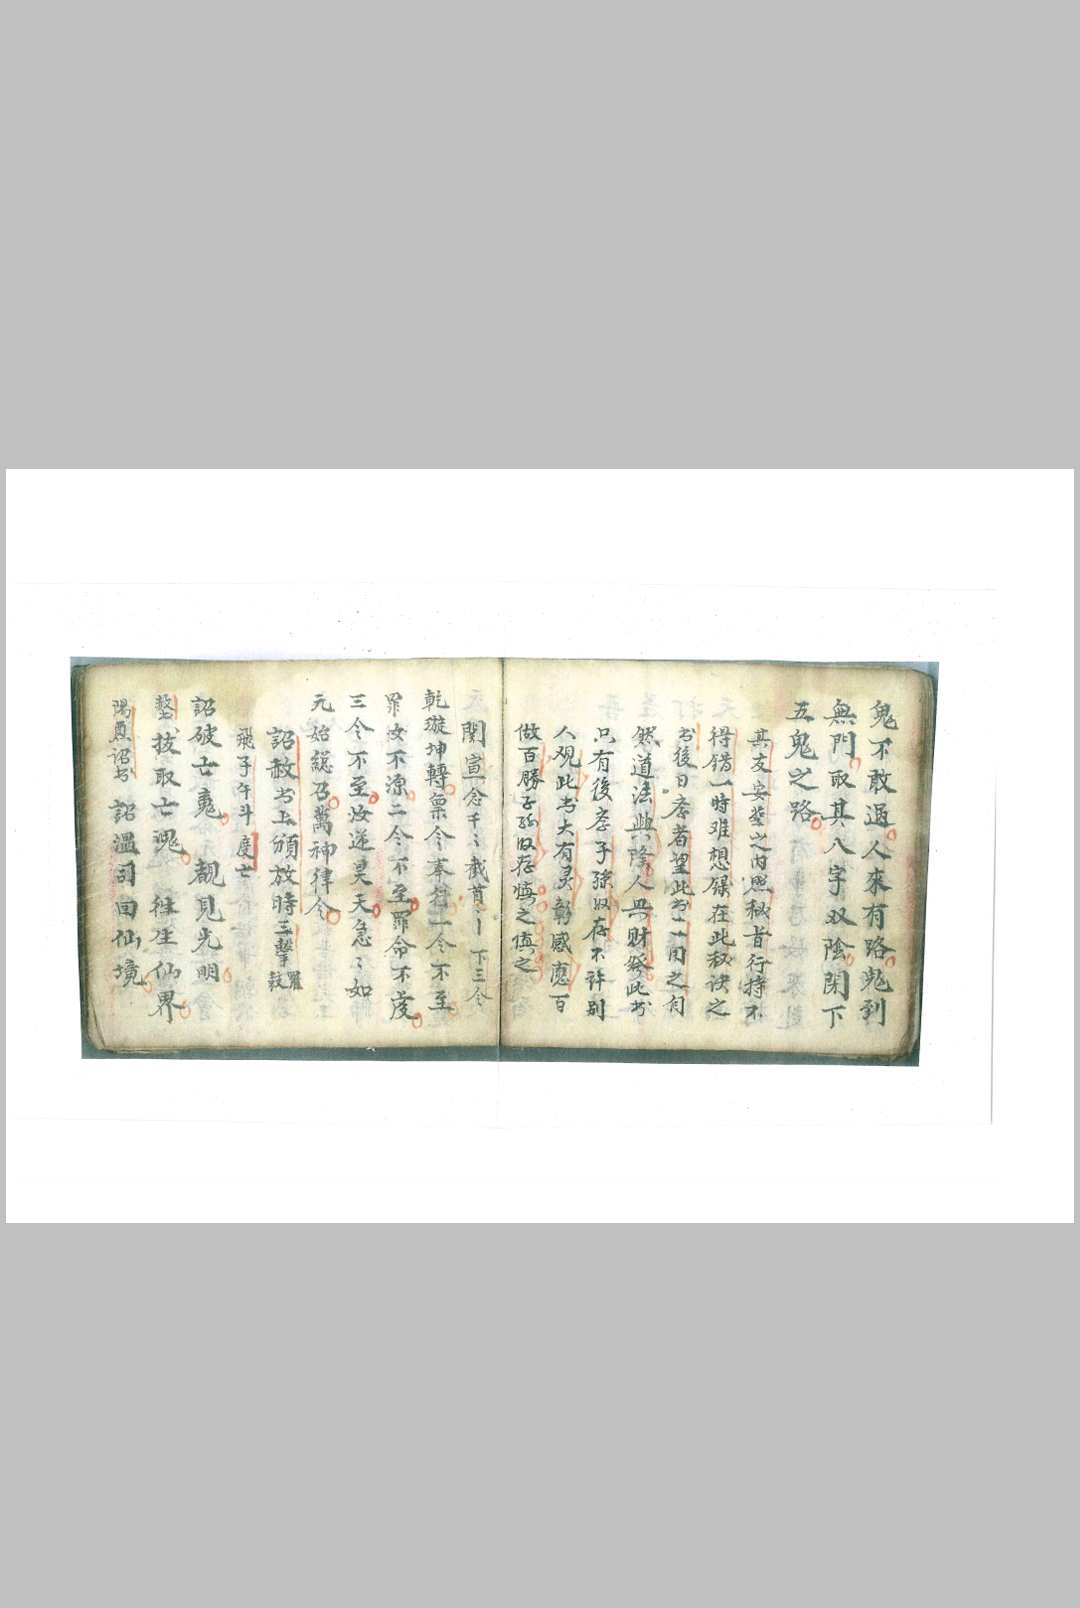 鬼不敢過人來有路鬼到
無門取其八字双陰閉下
五鬼之路
其友安葬之内照秘旨行持不
得錯一時难想保在此秘诀之
书後日孝者望此书一一用之自
然道法興隆人興財發此书
只有後孝子孫收存不許别
人观此书大有灵彰感應百
做百勝子孫收存慎之慎之
関宣念千〻截首〻 下三令
乾璇坤轉稟令奉行一令不至
罪汝不漂二令不至罪命不度
三令不至汝逆昊天急〻如
元始総召萬神律令
詔赦书上頒放時三擊
飛子午斗度亡
詔破亡竟 覩見光明
拔取亡魂 往生仙界
詔书 詔溫司回仙境